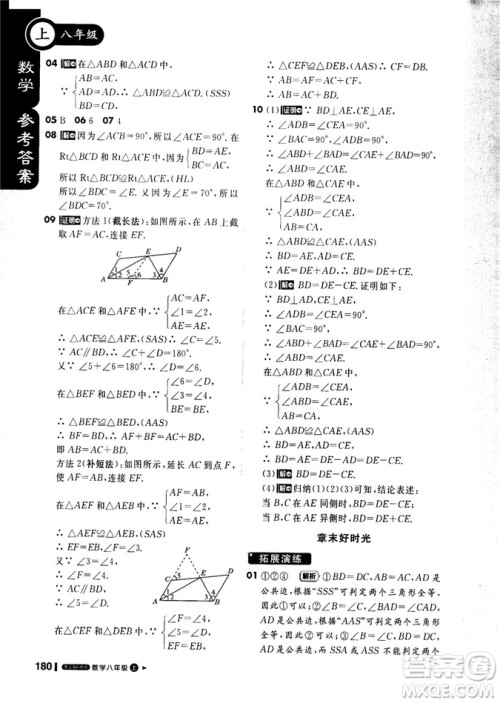 上 八年级
数学 参考答案
04 解 在△ABD和△ACD中,
AB=AC,
∵ BD=CD, ∴ △ABD≌△ACD.(SSS)
AD=AD,
05 B 06 6 07 4
08 解 因为∠ACB=90°,所以∠ACE=90°.在
Rt△BCD和Rt△ACE中,
∵ BD=AE, BC=AC, ∴ Rt△BCD≌Rt△ACE.(HL)
所以∠BDC=∠E.又∠E=70°,所以∠BDC=70°.
09 证明 方法1(截长法):如图所示,在AB上截取
AF=AC,连接EF.
C E D
1 2 5 6 3 4
A F B
AC=AF,
在△ACE和△AFE中, ∵ ∠1=∠2,
AE=AE,
∴ △ACE≌△AFE.(SAS) ∴ ∠5=∠C.
∵ AC∥BD, ∴ ∠C+∠D=180°.
又∠5+∠6=180°, ∴ ∠6=∠D.
∠6=∠D,
在△BEF和△BED中, ∵ ∠3=∠4,
BE=BE,
∴ △BEF≌△BED. ∴ BF=BD.
∵ AB=AF+BF, ∴ AB=AC+BD.
方法2(补短法):如图所示,延长AC至F,使
AF=AB,连接EF.
F
5
C 6 E D
1 2 3 4
A B
AF=AB,
在△AEF和△AEB中, ∵ ∠1=∠2,
AE=AE,
∴ △AEF≌△AEB.(SAS) ∴ EF=EB,∠5=∠3.
又∠3=∠4, ∴ ∠5=∠4.
∵ AC∥BD, ∴ ∠6=∠D.
∠5=∠4,
在△CEF和△DEB中, ∵ ∠6=∠D,
EF=EB,
∴ △CEF≌△DEB. ∴ CF=BD.
∵ AF=AC+CF, ∴ AF=AC+BD.
∴ AB=AC+BD.
10 (1) 证明 ∵ BD⊥AE,CE⊥AE,
∴ ∠ADB=∠CEA=90°.
∴ ∠ABD+∠BAD=90°.
∵ ∠BAC=90°,
∴ ∠ABD+∠BAD=∠CAE+∠BAD.
∴ ∠ABD=∠CAE.
在△ABD和△CAE中,
∠ADB=∠CEA,
∵ ∠ABD=∠CAE,
AB=AC,
∴ △ABD≌△CAE.
∴ BD=AE,AD=CE.
∵ AE=AD+DE, ∴ BD=DE+CE.
(2) 解 BD=DE-CE.证明如下:
∵ BD⊥AE,CE⊥AE,
∴ ∠ADB=∠CEA=90°.
∴ ∠ABD+∠BAD=90°.
∵ ∠BAC=90°,
∴ ∠ABD+∠BAD=∠BAD+∠CAE.
∴ ∠ABD=∠CAE.
在△ABD和△CAE中,
∠ADB=∠CEA,
∵ ∠ABD=∠CAE,
AB=AC,
∴ △ABD≌△CAE.
∴ BD=AE,AD=CE.
∴ AD+AE=BD+CE.
∵ DE=BD+CE, ∴ BD=DE-CE.
(3) 解 BD=DE-CE.
(4) 解 归纳(1)(2)(3)可知,结论表述:
当B,C在AE同侧时,BD=DE-CE;
当B,C在AE异侧时,BD=DE+CE.
章末好时光
拓展演练
01 ①②④ 解析 ①BD=DC,AB=AC,AD是
公共边,根据“SSS”可判定两个三角形全等,
②∠ADB=∠ADC,BD=DC,AD是公共边,
根据“SAS”可判定两个三角形全等,
④∠ADB=∠ADC,∠BAD=∠CAD,AD是
公共边,根据“ASA”可判定两个三角形全等.
180 数学八年级 上